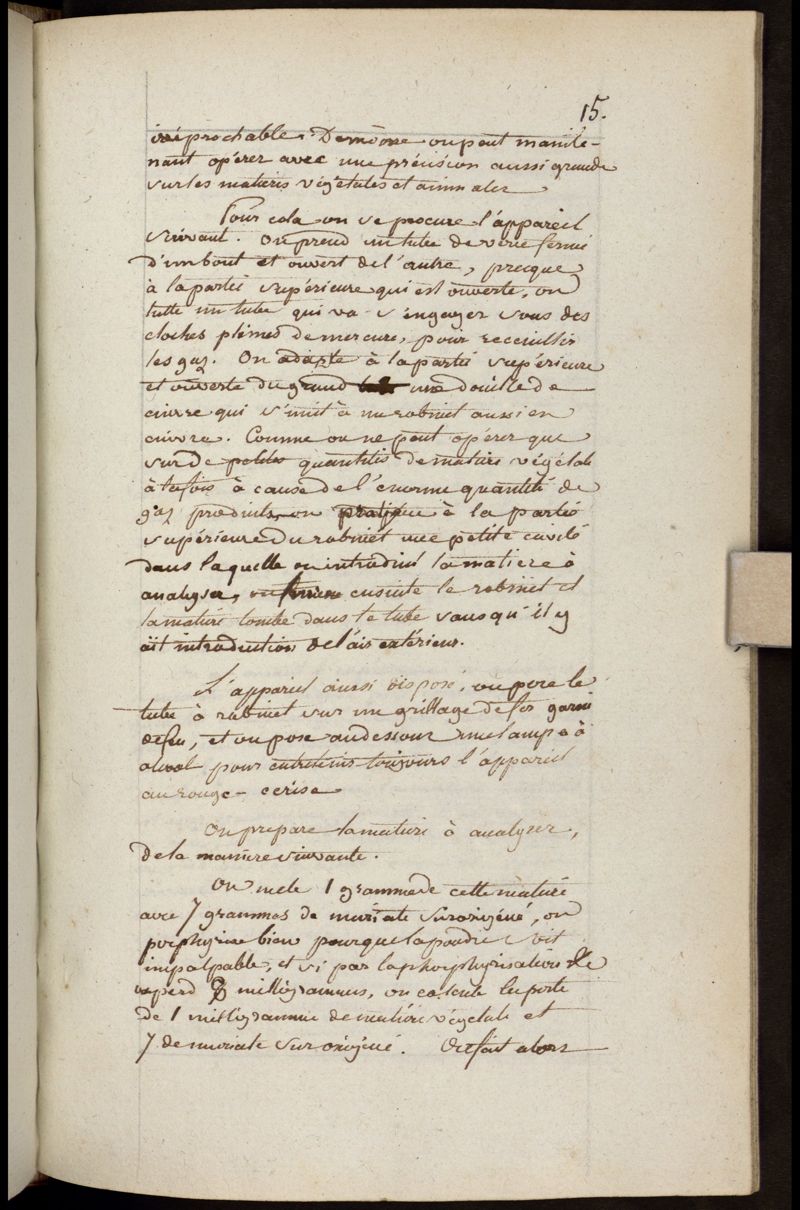 15.
irréprochable. De même on peut mainte-
nant opérer avec une précision aussi grande
sur les matieres végétales et animales
Pour cela on se procure l'appareil
suivant. On prend un tube de verre fermé
d'un bout et ouvert de l'autre, presque
à la partie supérieure qui est ouverte, on
lutte un tube qui va s'engager sous des
cloches pleines de mercure, pour receuillir
les gaz. On adapte à la partie supérieure
et ouverte du grand une douille de
cuivre qui s'unit à un robinet aussi en
cuivre. Comme on ne peut opérer que
sur de petites quantités de matieres végétale
à la fois à cause de l'enorme quantité de
gaz produits, on pratique à la partie
supérieure du robinet une petite cavité
dans laquelle on introduit la matiere à
analyser, on ensuite le robinet et
la matiere tombe dans le tube sans qu'il y
ait introduction de l'air extérieur.
L'appareil ainsi disposé, on pose le
tube à robinet sur un grillage de fer garni
de feu, et on pose au dessous une lampe à
alcool pour entretenir toujours l'appareil
au rouge-cerise
On prepare la matiere à analyser,
de la maniere suivante.
On mele 1 gramme de cette matiere
avec 7 grammes de muriate suroxigéné, on
porphyrise bien pour que la poudre soit
impalpable, et si par la phorphyrisation elle
perd 8 milligrammes, on calcule la perte
de 1 milligramme de matiere végétale et
7 de muriate suroxigéné. On fait alors